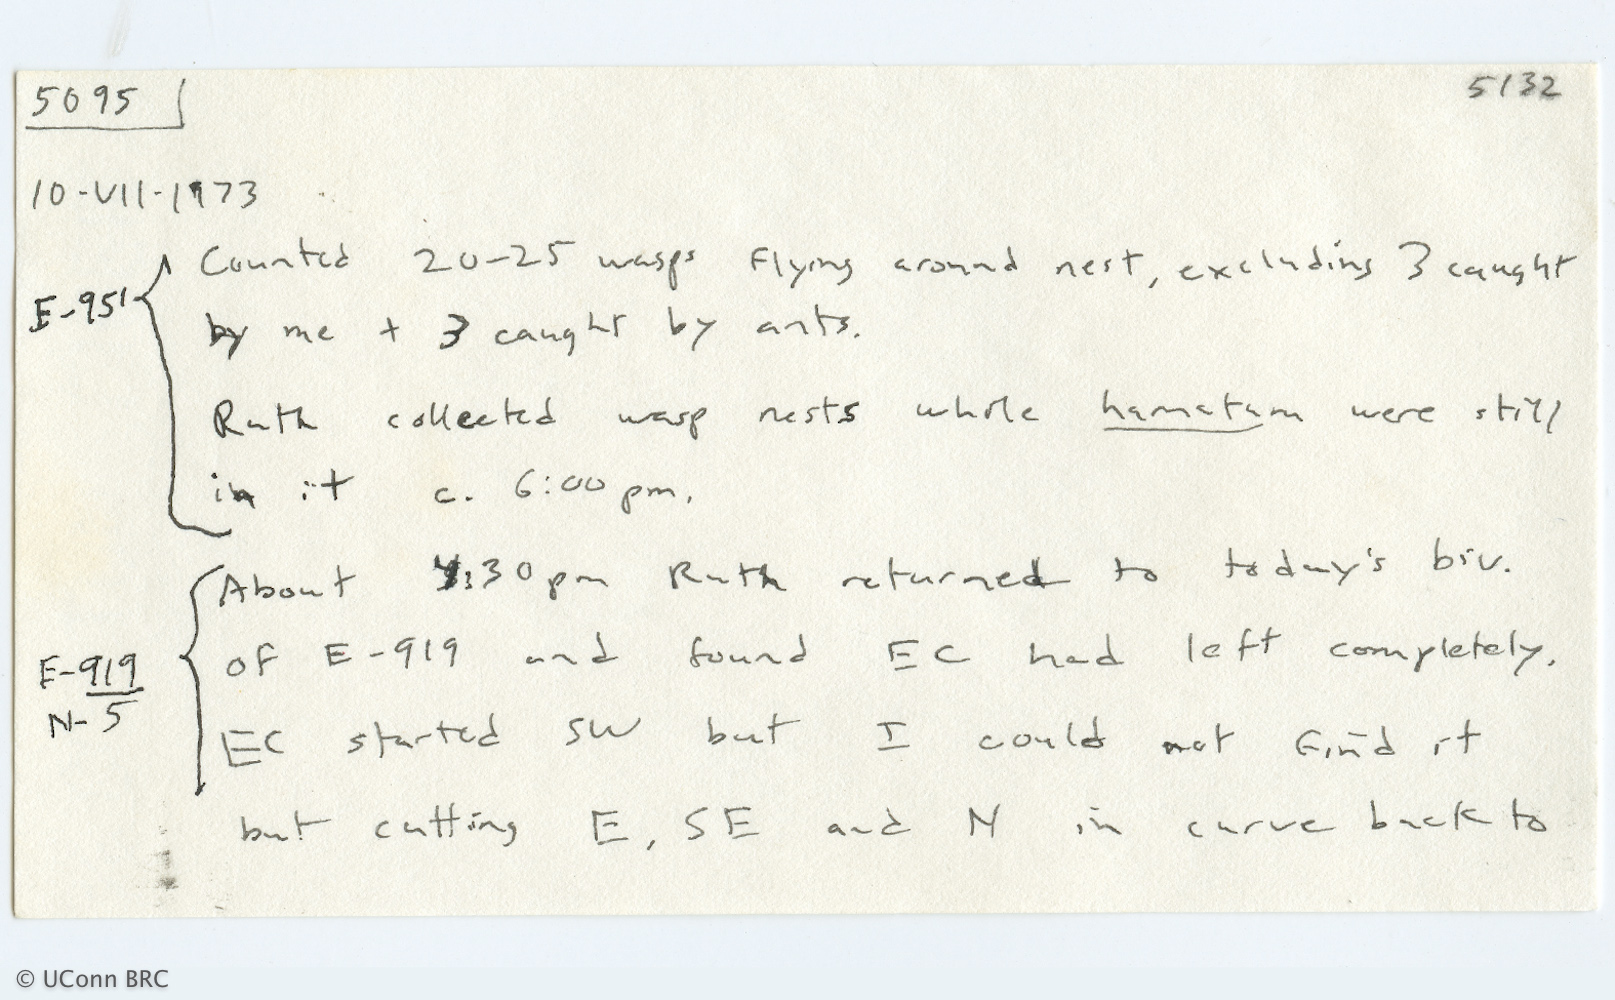 5095
5132
10-VII-1973
E-951
Counted 20-25 wasps flying around nest, excluding 3 caught
by me + 3 caught by ants.
Ruth collected wasp nests whole hamatum were still
in it c. 6:00 pm.
E-919
N-5
About :30pm Ruth returned to today's biv.
of E-919 and found EC had left completely.
EC started SW but I could not find it
but cutting E, SE and N in curve back to
© UConn BRC